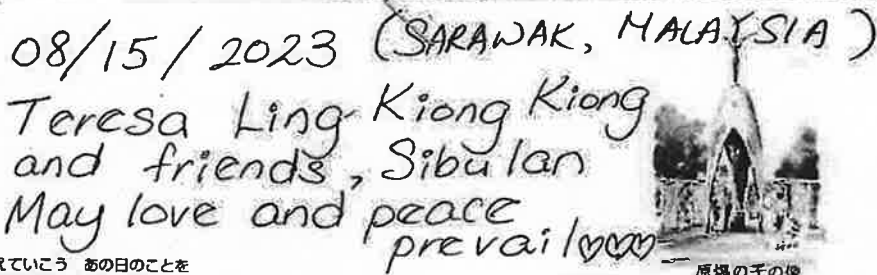 08/15/2023 (SARAWAK, MALAYSIA)
Teresa Ling Kiong Kiong
and friends, Sibulan
May love and peace
prevail♡♡♡
えていこう あの日のことを
原爆の子の像